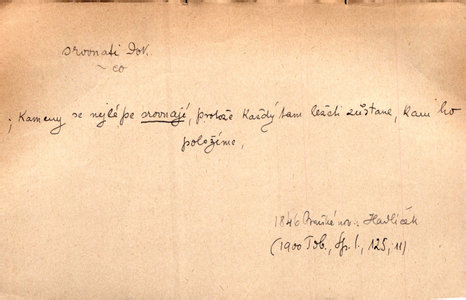 srovnati Dok.
~ co
; Kameny se nejlépe srovnají, protože každý tam ležeti zůstane, kam ho
položíme,
1846 Pražské nov. Havlíček
(1900 Tob., Sp. I., 125, 11)